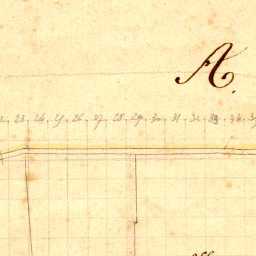 A.
23. 24. 25. 26. 27. 28. 29. 30. 31. 32. 33. 34.